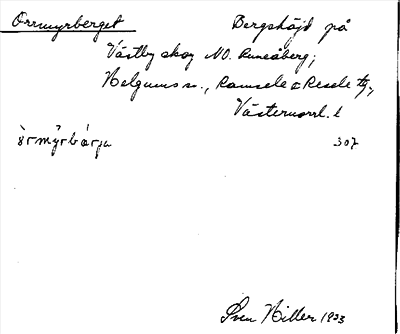 Orrmyrberget Bergshöjd på
Västby skog NO. Runeåberg;
Helgums sn., Ramsele o Resele tg.,
Västernorrl. l
òrmy̌rbárja 307
Sven Hiller 1933